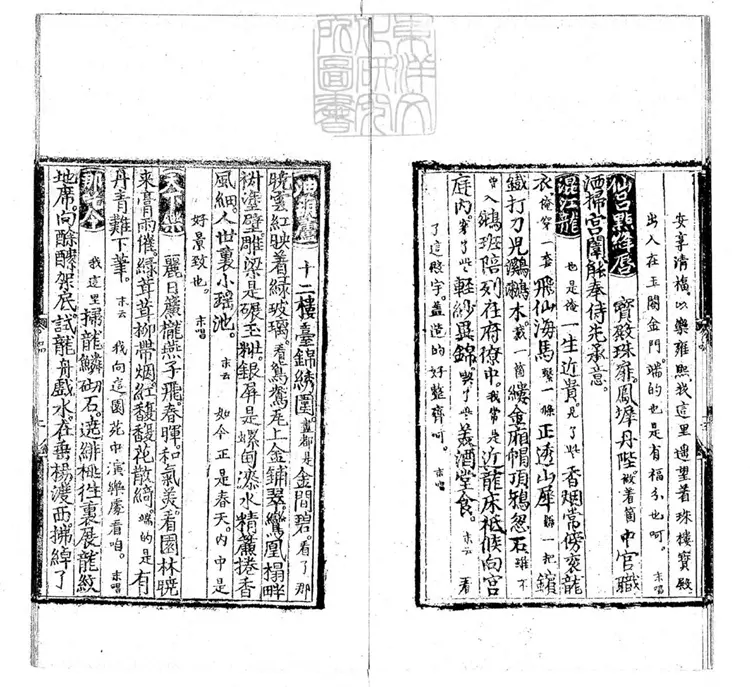 東洋文
化研究
所圖書
安享清橫。以樂雍熙我這里遥望着珠樓寶殿
出入在玉閣金門。端的也是有福分也呵。 末唱
仙呂點絳唇 寳殿珠扉。鳳墀丹陛。被着箇中官職
洒掃宮闈。能奉侍先承意。
混江龍 也是俺一生近貴。見了些香烟常傍衮龍
衣。俺穿一套飛仙海馬繫一條正透山犀懸一把鑌
鐵打刀兒鸂鶒木。戴一箇縷金廂帽頂鴉忽石雖不
曾入鵷班陪列在府僚中。我常是近龍床祗候向宮
庭內。穿了些輕紗異錦。喫了些羙酒堂食。末云 看
了這殿宇。盖造的好整齊呵。 末唱
油葫蘆 十二樓臺錦綉圍。盡都是金間碧。看了那
曉雲紅映着綠玻璃。看鴛鴦瓦上金鋪翠。鸞凰搨畔
塗壁。雕梁是碾玉粧。銀屏是螺甸漆。水精簾捲香
風細。人世裏小瑶池。 末云 如今正是春天。內中是
好景致也。 末唱
天下樂 麗日簾櫳燕子飛。春暉和氣美。看園林曉
來膏雨催。綠茸茸柳帶烟。紅馥馥花散綺。端的是有
丹青難下筆。末云 我向這園苑中演樂處看咱。末唱
那吒令 我這里掃龍鱗砌石。遶緋桃徃裏。展龍紋
地席。向酴醿架底。試龍舟戲水。在垂楊渡西。拂綽了